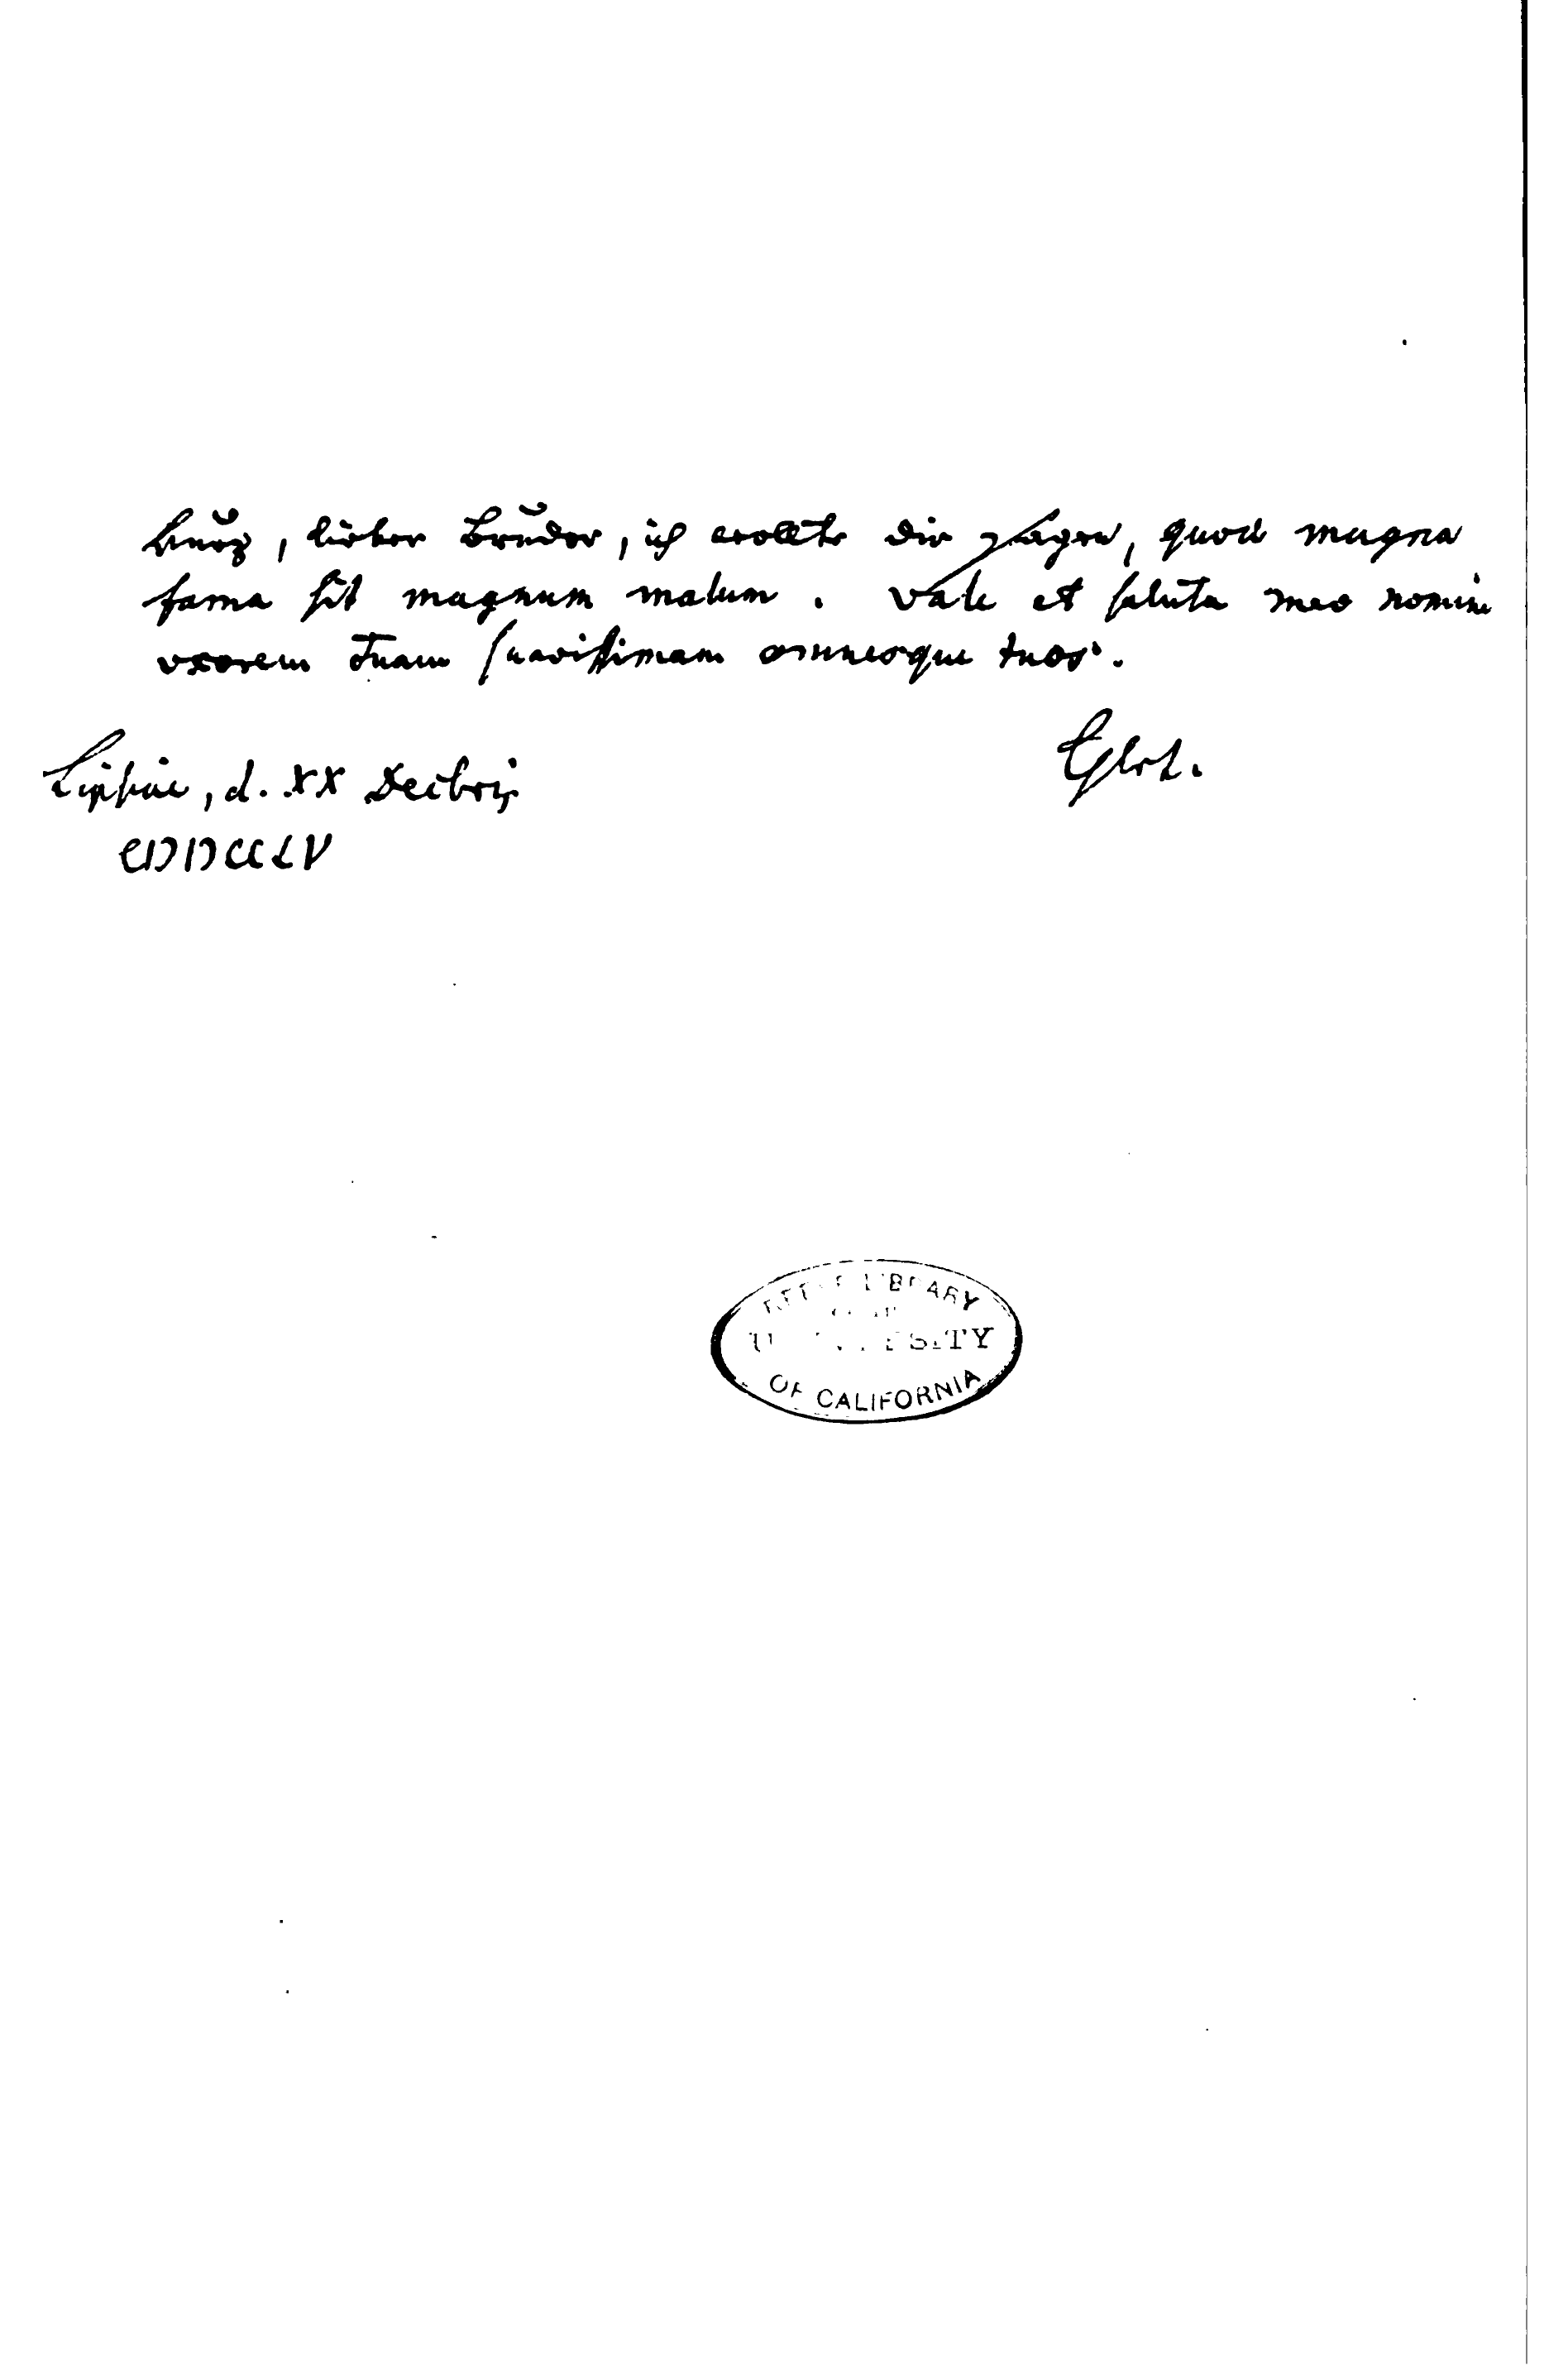 Kurz, lieber Bruder, ich wollte dir sagen, quod magna
fama sit magnum malum. Vale et saluta meo nomine
uxorem tuam suavissimam omnesque tuos.
Glrt.
Lipsiae, d. XX Decbris
CIƆIƆCCLV
LIBRARY
UNIVERSITY
OF CALIFORNIA